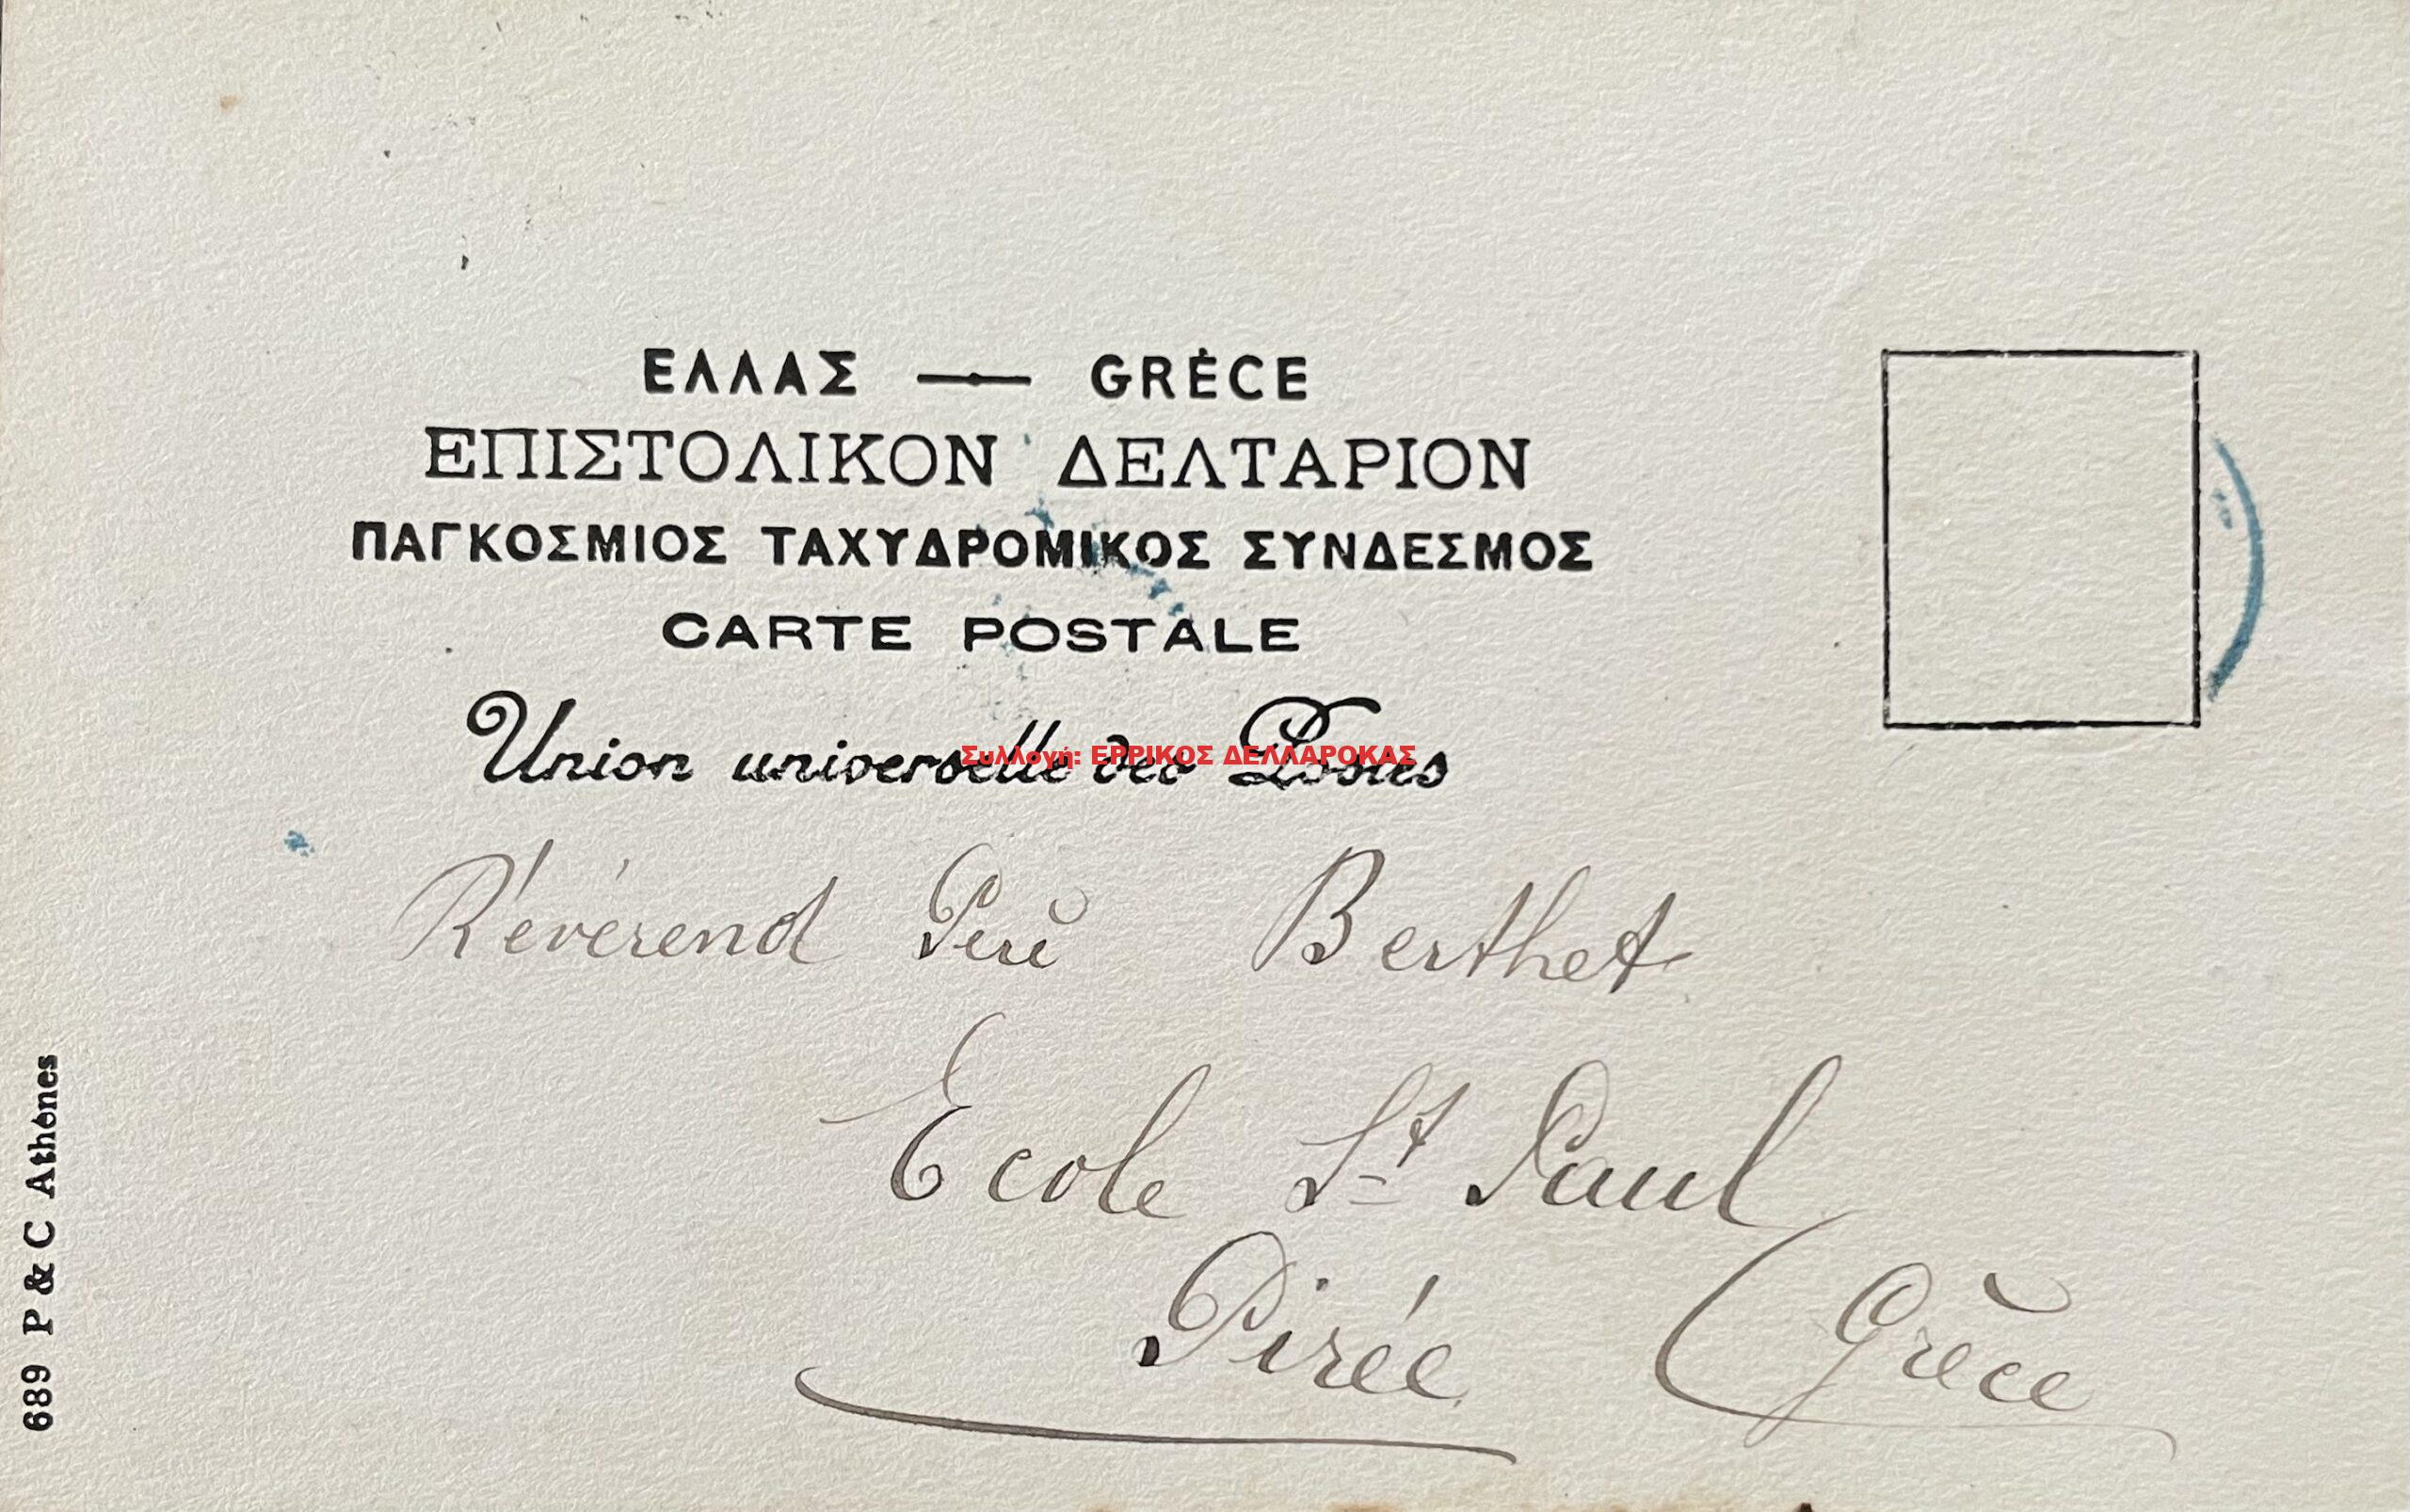 ΕΛΛΑΣ — GRÈCE
ΕΠΙΣΤΟΛΙΚΟΝ ΔΕΛΤΑΡΙΟΝ
ΠΑΓΚΟΣΜΙΟΣ ΤΑΧΥΔΡΟΜΙΚΟΣ ΣΥΝΔΕΣΜΟΣ
CARTE POSTALE
Union universelle des Postes
Συλλογή: ΕΡΡΙΚΟΣ ΔΕΛΛΑΡΟΚΑΣ
Révérend Père Berthet
Ecole St Paul
Pirée (Grèce
689 P & C Athènes